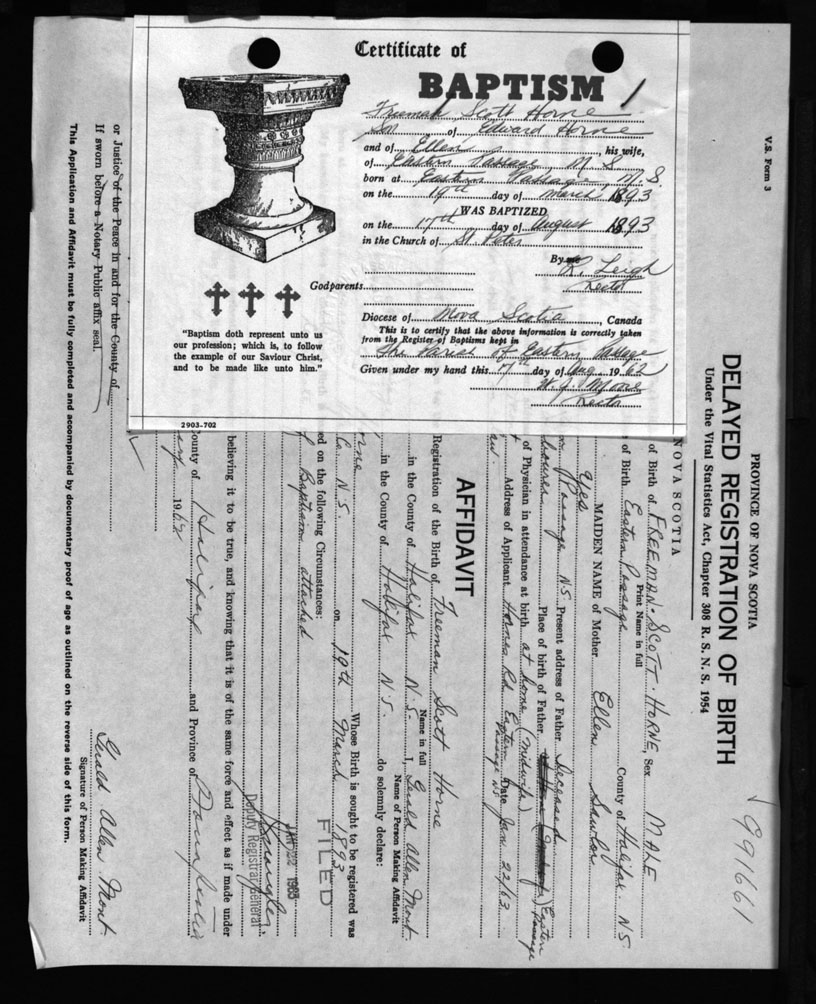 Certificate of
BAPTISM
Freeman Scott Horne
Son of Edward Horne
and of Ellen , his wife,
of Eastern Passage, N.S.
born at Eastern Passage, N.S.
on the 19th day of March 1893
WAS BAPTIZED
on the 17th day of August 1893
in the Church of St. Peter
By me R. Leigh
Rector
Godparents
Diocese of Nova Scotia , Canada
This is to certify that the above information is correctly taken
from the Register of Baptisms kept in
The Parish of Eastern Passage
Given under my hand this 17th day of Aug 1962
W. J.
Rector
"Baptism doth represent unto us
our profession; which is, to follow
the example of our Saviour Christ,
and to be made like unto him."
2903-702
V.S. Form 3
991661
PROVINCE OF NOVA SCOTIA
DELAYED REGISTRATION OF BIRTH
Under the Vital Statistics Act, Chapter 308 R. S. N. S. 1954
NOVA SCOTIA
of Birth of FREEMAN·SCOTT·HORNE, Sex MALE
Print Name in full
of Birth Eastern Passage County of Halifax. NS
MAIDEN NAME of Mother Ellen
Yes
Passage NS Present address of Father Deceased
Place of birth of Father Eastern Passage
of Physician in attendance at birth at home (midwife)
Address of Applicant Horne's Rd. Eastern Passage NS Date Jan 22/63
AFFIDAVIT
Registration of the Birth of Freeman Scott Horne
Name in full
in the County of Halifax N.S. I, Gerald Allen Mont
Name of Person Making Affidavit
in the County of Halifax N.S. do solemnly declare:
Whose Birth is sought to be registered was
N.S. on 19th March 1893
ed on the following Circumstances:
FILED
of Baptism attached
JAN 22 1963
Deputy Registrar General
believing it to be true, and knowing that it is of the same force and effect as if made under
ounty of Halifax and Province of Nova Scotia
19
or Justice of the Peace in and for the County of
If sworn before a Notary Public affix seal.
Gerald Allen Mont
Signature of Person Making Affidavit
This Application and Affidavit must be fully completed and accompanied by documentary proof of age as outlined on the reverse side of this form.